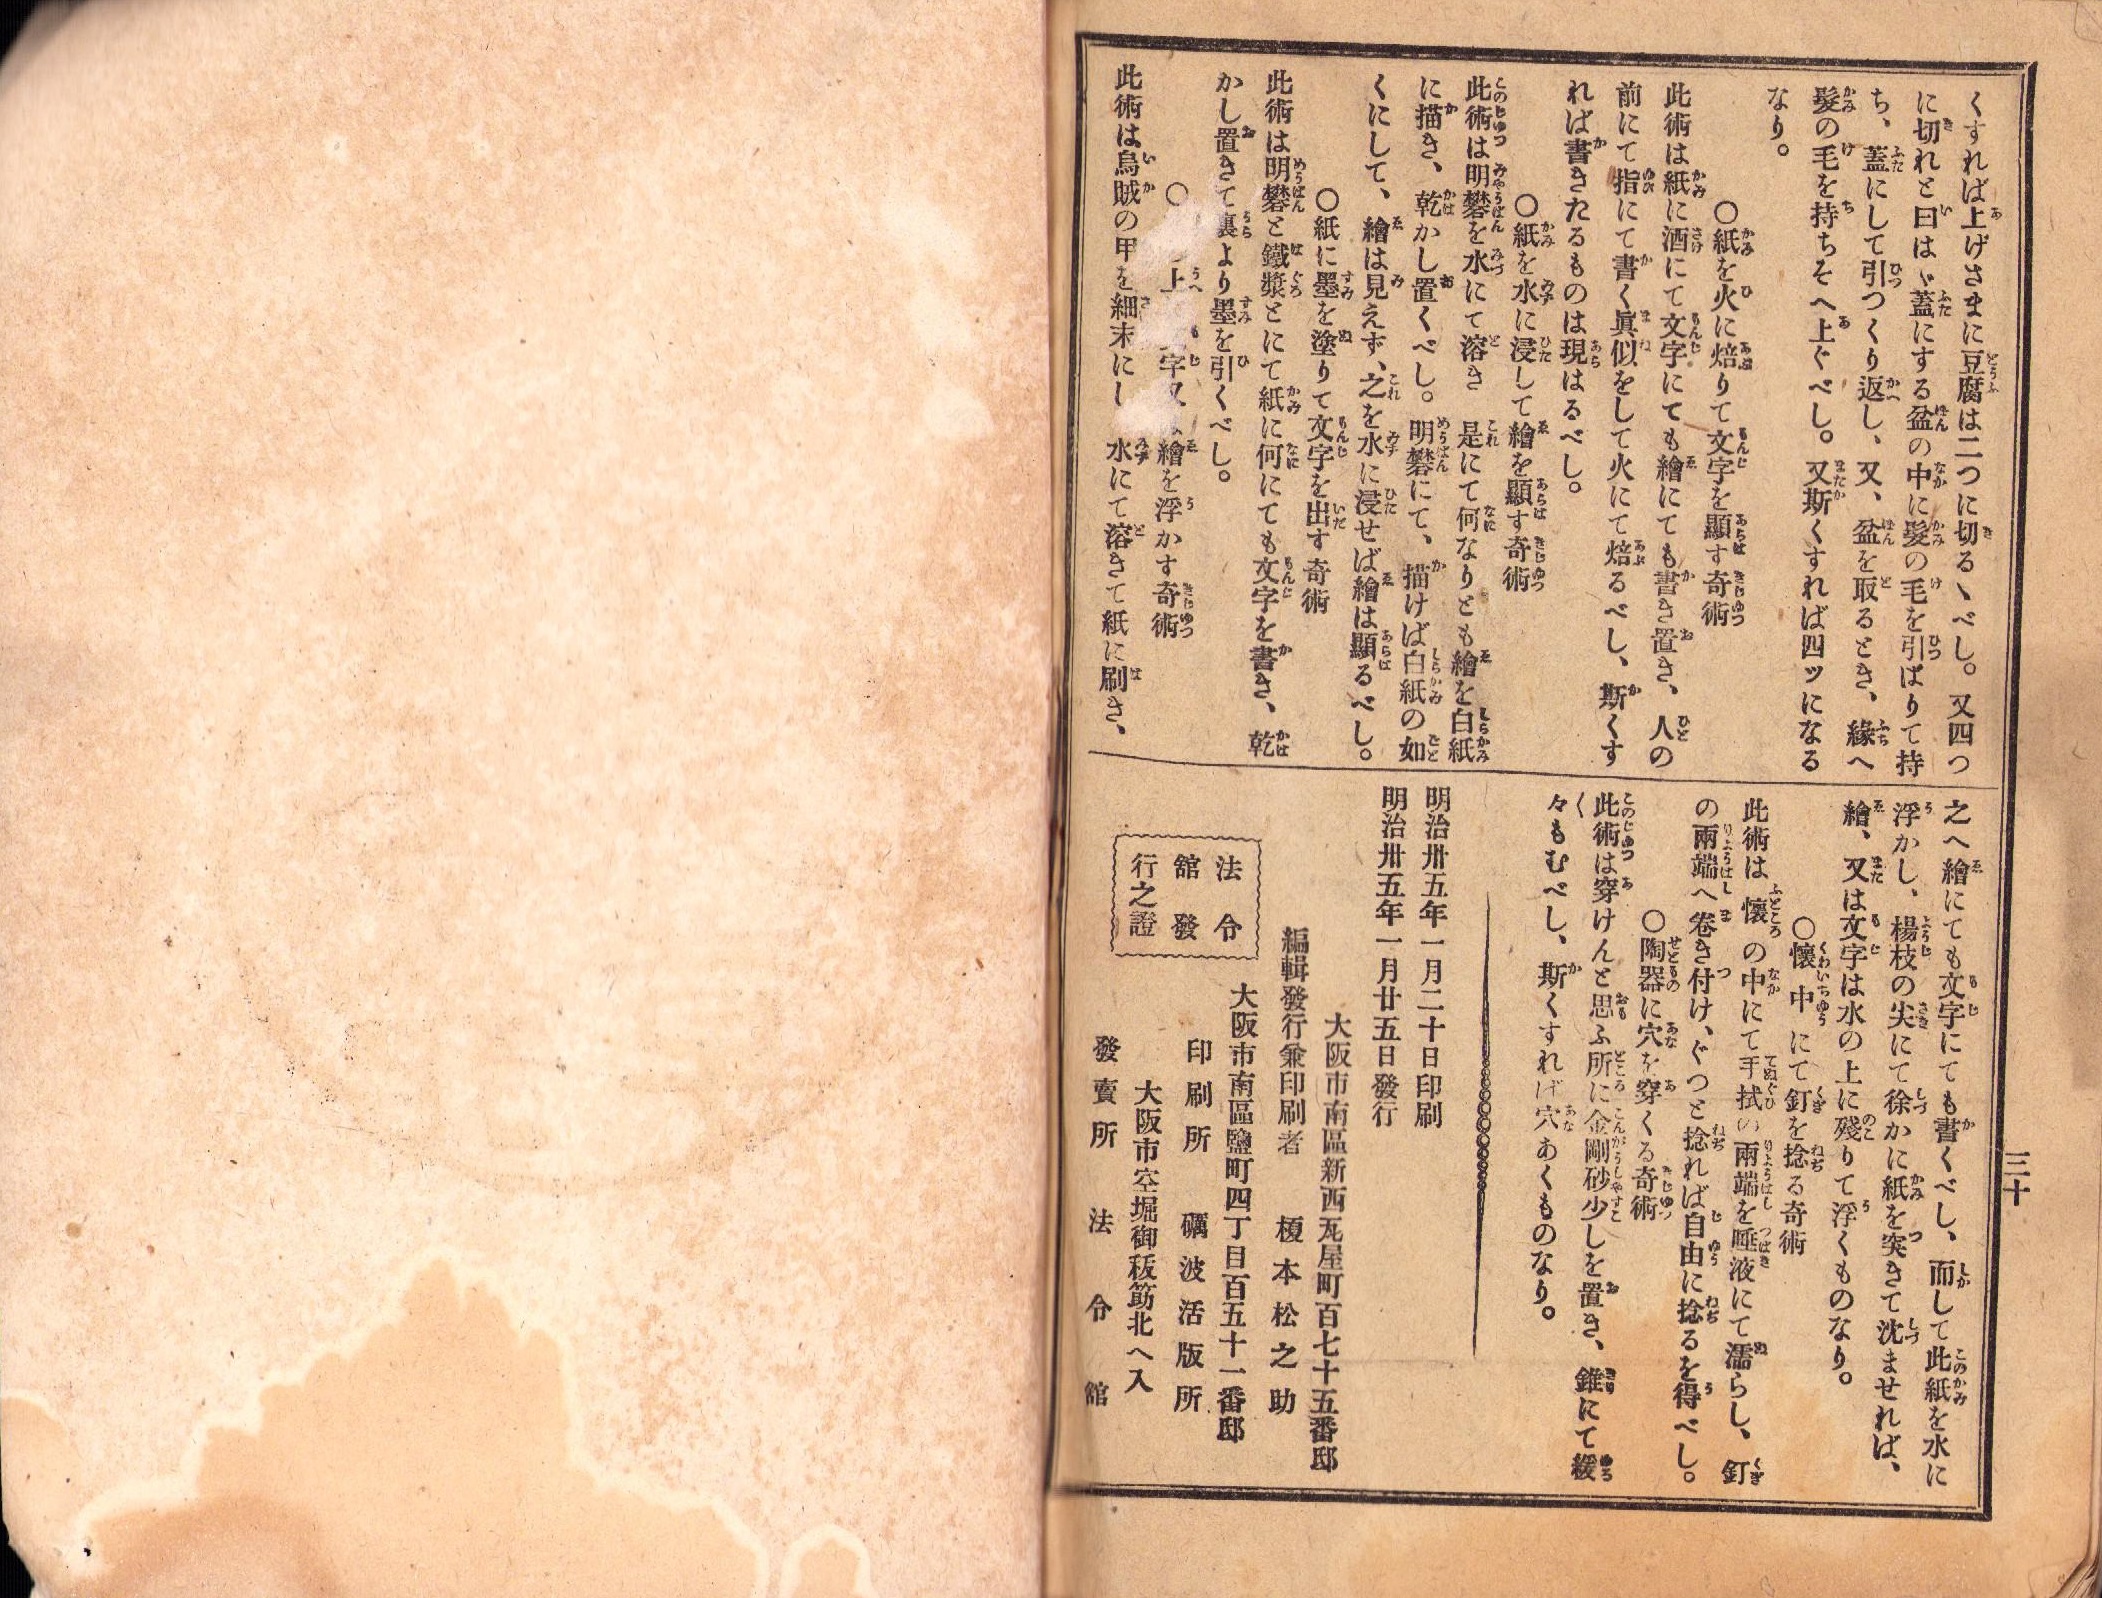 くすれば上げさまに豆腐は二つに切るヽべし。又四つ
に切れと曰はゞ蓋にする盆の中に髮の毛を引ぱりて持
ち、蓋にして引つくり返し、又、盆を取るとき、緣へ
髮の毛を持ちそへ上ぐべし。又斯くすれば四ッになる
なり。
〇紙を火に焙りて文字を顯す奇術
此術は紙に酒にて文字にても繪にても書き置き、人の
前にて指にて書く眞似をして火にて焙るべし、斯くす
れば書きたるものは現はるべし。
〇紙を水に浸して繪を顯す奇術
此術は明礬を水にて溶き 是にて何なりとも繪を白紙
に描き、乾かし置くべし。明礬にて、描けば白紙の如
くにして、繪は見えず、之を水に浸せば繪は顯るべし。
〇紙に墨を塗りて文字を出す奇術
此術は明礬と鐵漿とにて紙に何にても文字を書き、乾
かし置きて裏より墨を引くべし。
〇 上 字又 繪を浮かす奇術
此術は烏賊の甲を細末にし 水にて溶きて紙に刷き、
之へ繪にても文字にても書くべし、而して此紙を水に
浮かし、楊枝の尖にて徐かに紙を突きて沈ませれば、
繪、又は文字は水の上に殘りて浮くものなり。
〇懷中にて釘を捻る奇術
此術は懷の中にて手拭の兩端を唾液にて濡らし、釘
の兩端へ卷き付け、ぐつと捻れば自由に捻るを得べし。
〇陶器に穴を穿くる奇術
此術は穿けんと思ふ所に金剛砂少しを置き、錐にて緩
々もむべし、斯くすれば穴あくものなり。
明治卅五年一月二十日印刷
明治卅五年一月廿五日發行
大阪市南區新西瓦屋町百七十五番邸
編輯發行兼印刷者 榎本松之助
大阪市南區鹽町四丁目百五十一番邸
印刷所 礪波活版所
大阪市空堀御秡筋北へ入
發賣所 法令舘
法令
舘發
行之證
三十